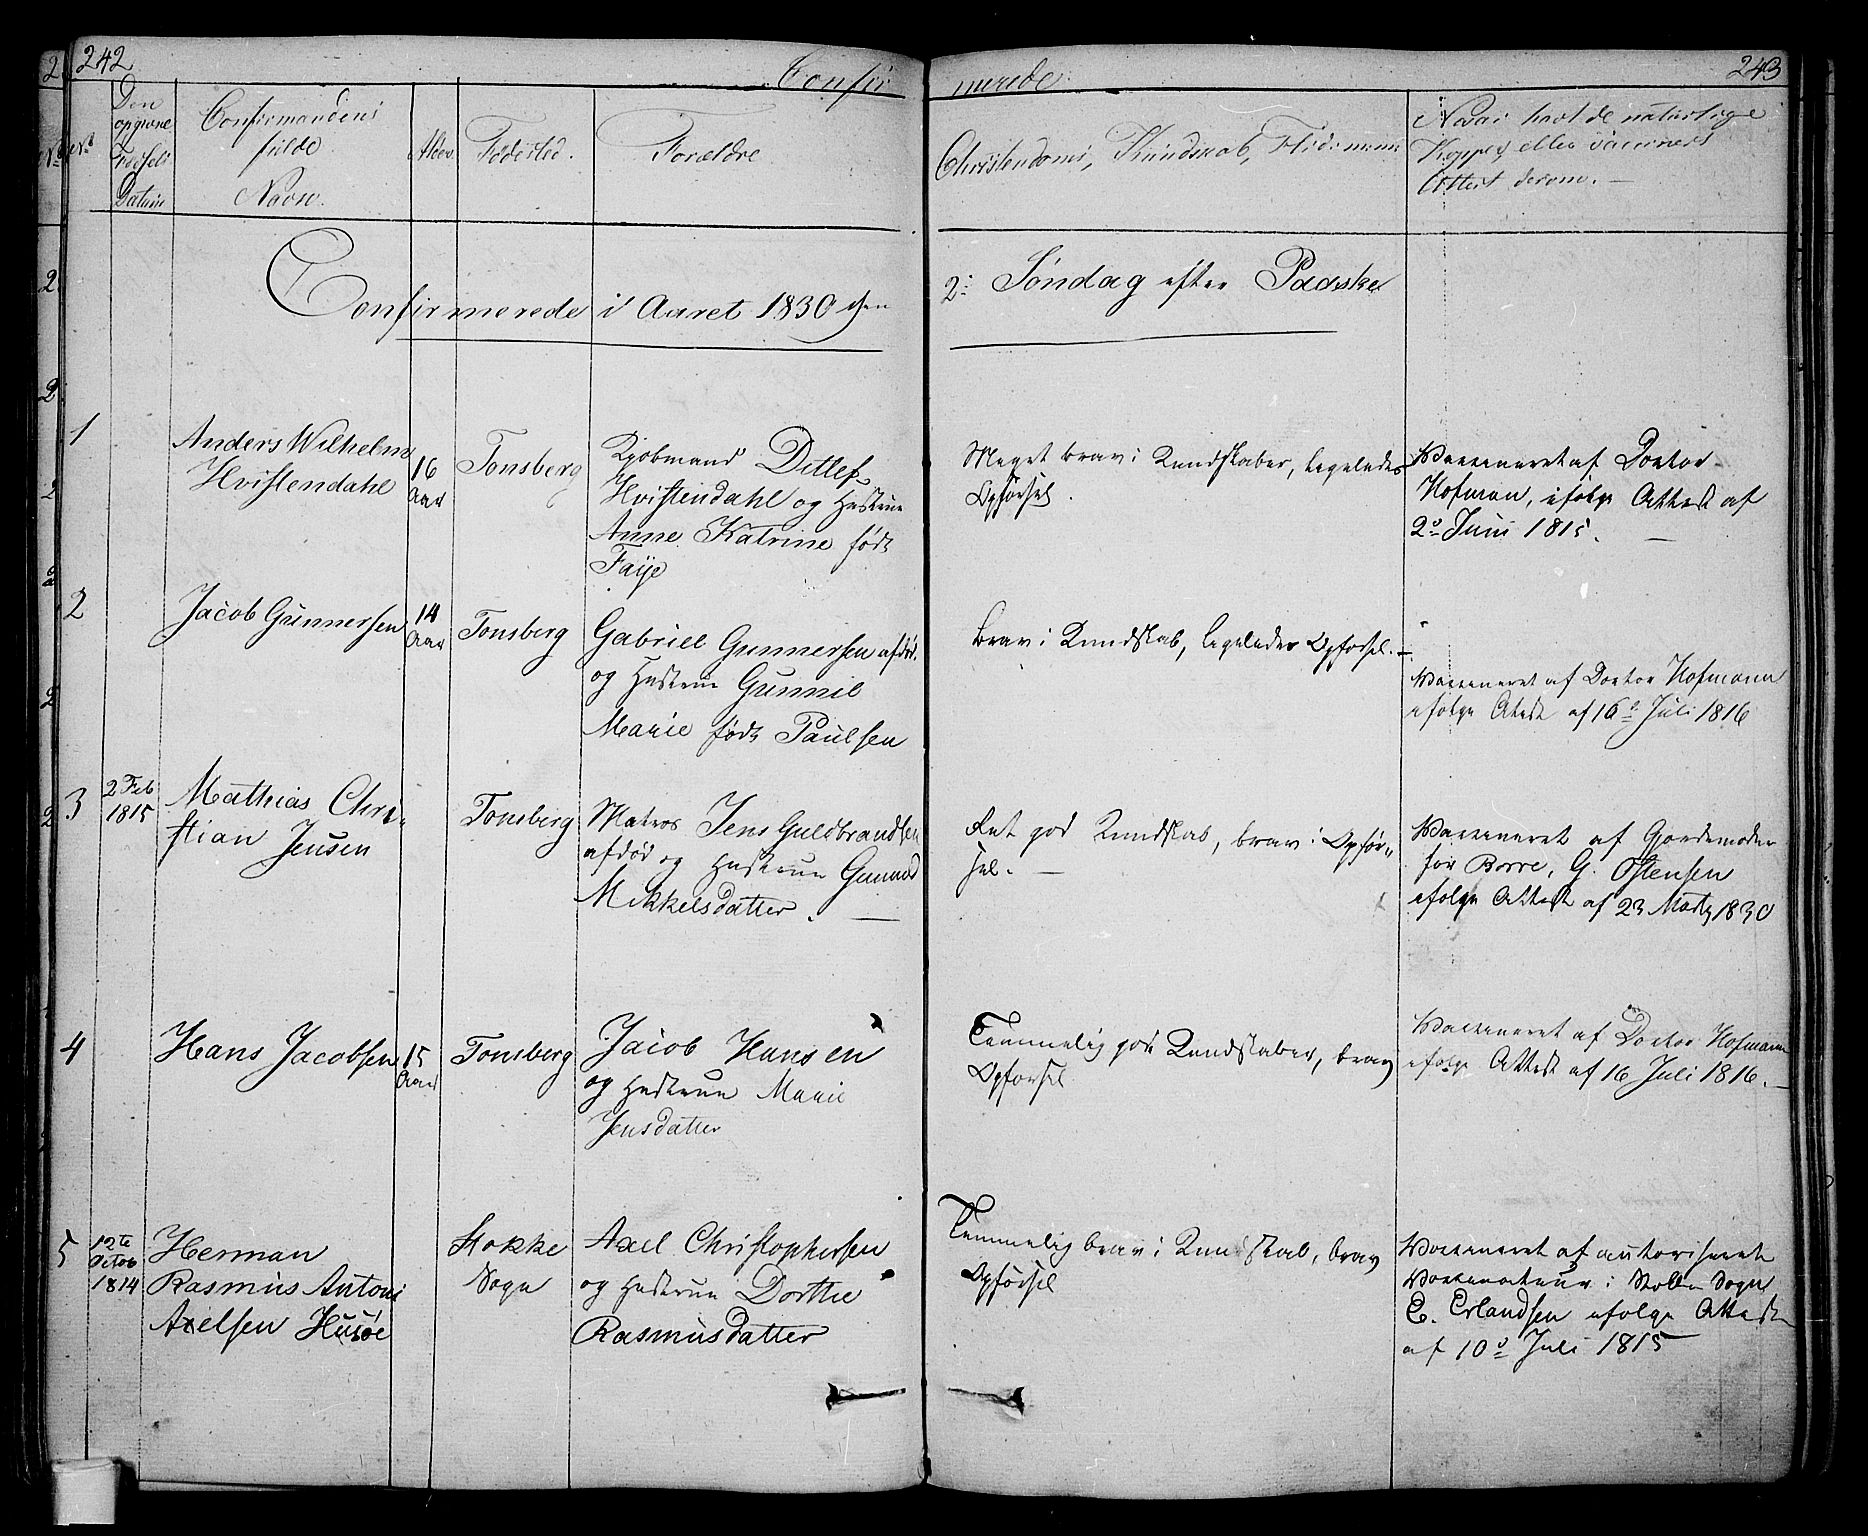 242
Confir
merede
243
No
Den opgivne Fødsels Datum
Confirmandens fulde Navn.
Alder
Fødested.
Forældre
Christendoms, Kundskab, Flid
Naar havt de naturlige
Kopper eller vaccineret
Attest derom. —
Confirmerede i Aaret 1830 den
2: Søndag efter Paaske
1
Anders Wilhelm
Hvistendahl
16
Aar
Tonsberg
Kjøbmand Ditlef
Hvistendahl og Hustrue
Anne Katrine født
Faije
Meget brav i Kundskaber, ligeledes
Opførsel.
Vaccineret af Doctor
Hofman, ifølge Attest af
2de Juni 1815. —
2
Jacob Gunnersen
14
Aar
Tonsberg
Gabriel Gunnersen afdød.
og Hustrue Gunnil
Marie født Paulsen
brav i Kundskab, ligeledes Opførsel. —
Vaccineret af Doctor Hofmann
ifølge Attest af 16de Juli 1816
3
2 Feb
1815
Mathias Chri-
stian Jensen
Tonsberg
Matros Jens Guldbrandsen
afdød og Hustrue
Mikkelsdatter. —
Ret god Kundskab, brav i Opfør-
sel. —
Vaccineret af Gjordemoder
for Borre, G. Ostensen
ifølge Attest af 23 Marts 1830
4
Hans Jacobsen
15
Aar
Tonsberg
Jacob Hansen
og Hustrue Marie
Jensdatter
Temmelig god Kundskaber, brav
Opførsel.
Vaccineret af Doctor Hofmann
ifølge Attest af 16 Juli 1816. —
5
12te
Octob
1814
Herman
Rasmus Antoni
Axelsen Husøe
Stokke
Sogn
Axel Christophersen
og Hustrue Dorthe
Rasmusdatter
Temmelig brav i Kundskab, brav
Opførsel
Vaccineret af autoriserete
Vaccinateur i Sogn
E. Erlandsen ifølge Attest
af 10de Juli 1815